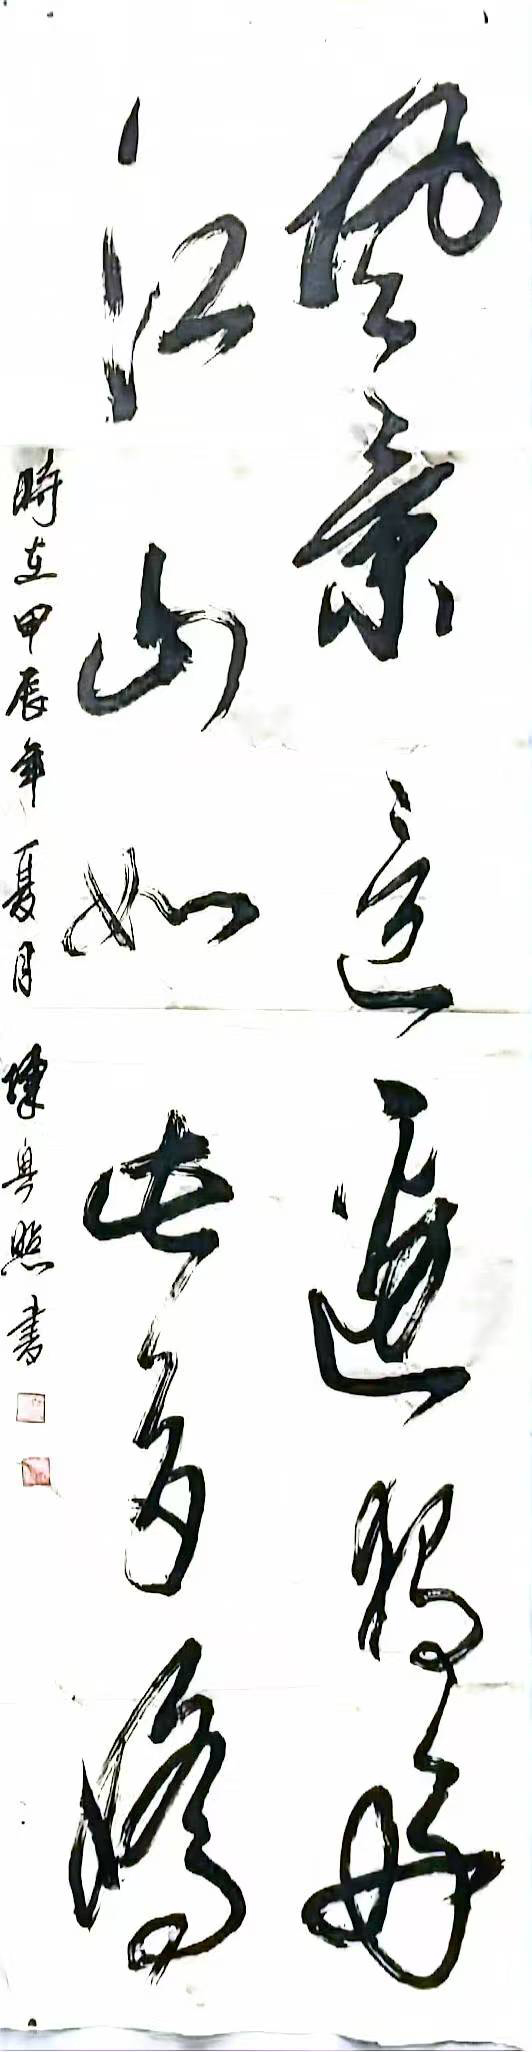 風景這邊獨好
江山如此多嬌
時在甲辰年夏月 陳 照書